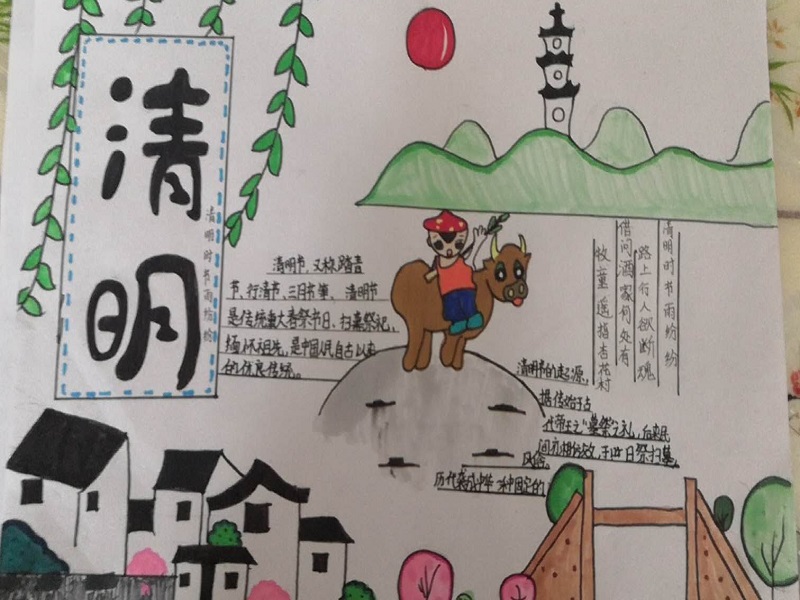 清明
清明时节雨纷纷
清明节，又称踏青
节、行清节、三月节等，清明节
是传统重大春祭节日，扫墓祭祀，
缅怀祖先，是中国人民自古以来
的优良传统。
清明时节雨纷纷
路上行人欲断魂
借问酒家何处有
牧童遥指杏花村
清明节的起源，
据传始于古
代帝王之“墓祭”之礼，后来民
间亦相仿效，于此日祭扫墓，
历代沿袭成中华一种固定的
风俗。